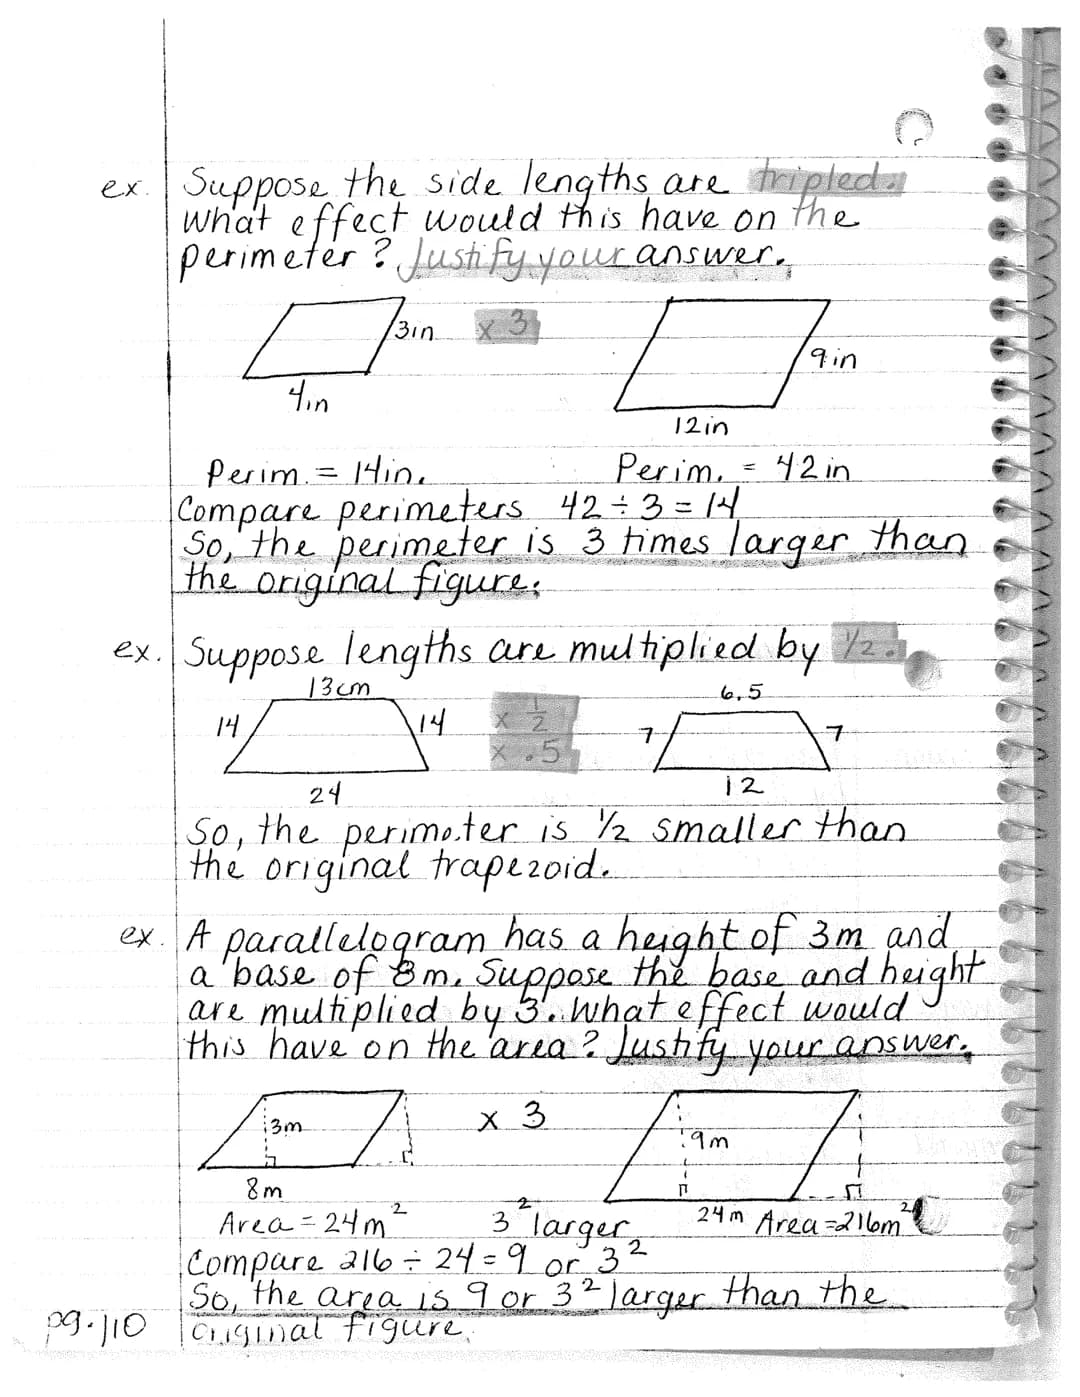 ex. Suppose the side lengths are tripled.
What effect would this have on the
perimeter? Justify your answer.
3in x 3
9in
4in
12in
Perim. = 14in. Perim. = 42in
Compare perimeters 42 ÷ 3 = 14
So, the perimeter is 3 times larger than
the original figure.
ex. Suppose lengths are multiplied by 1/2.
13cm 6.5
14 14 x 1/2 7 7
x .5
24 12
So, the perimeter is 1/2 smaller than
the original trapezoid.
ex. A parallelogram has a height of 3m and
a base of 8m. Suppose the base and height
are multiplied by 3. What effect would
this have on the area? Justify your answer.
3m x 3 9m
8m 24m
Area = 24m² 3² larger Area = 216m²
Compare 216 ÷ 24 = 9 or 3²
So, the area is 9 or 3² larger than the
pg. 110 original figure.